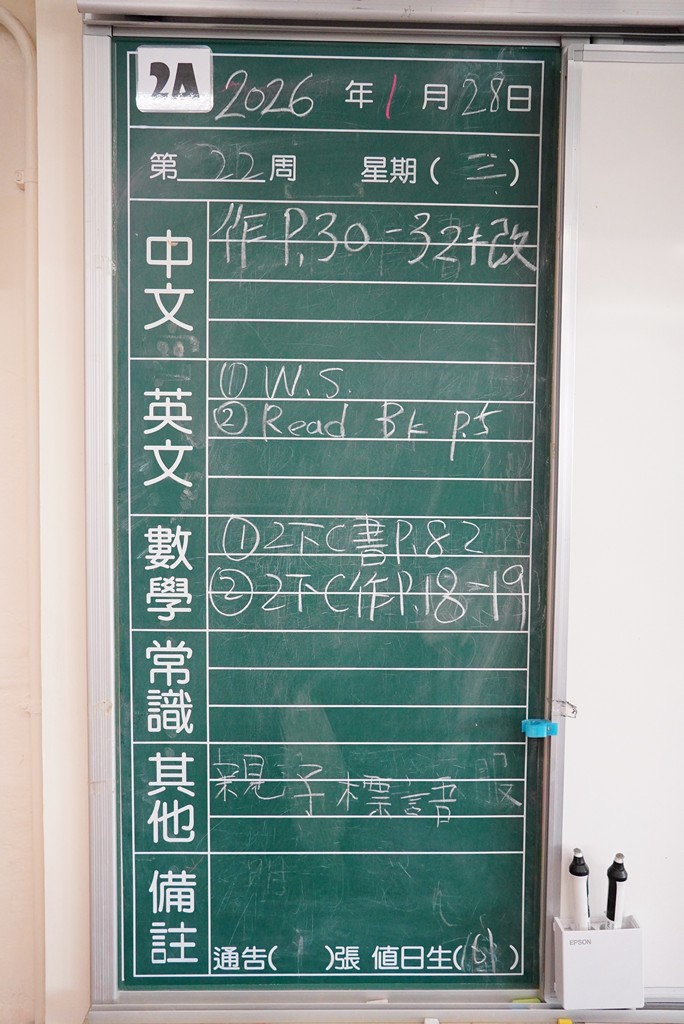 2A 2026年1月28日
第22周 星期(三)
中文
作P.30-32+改
英文
① W.S.
② Read Bk p.5
數學
①2下C書P.82
②2下C作P.18-19
常識
其他
親子標語
備註
通告( )張 值日生( )
EPSON